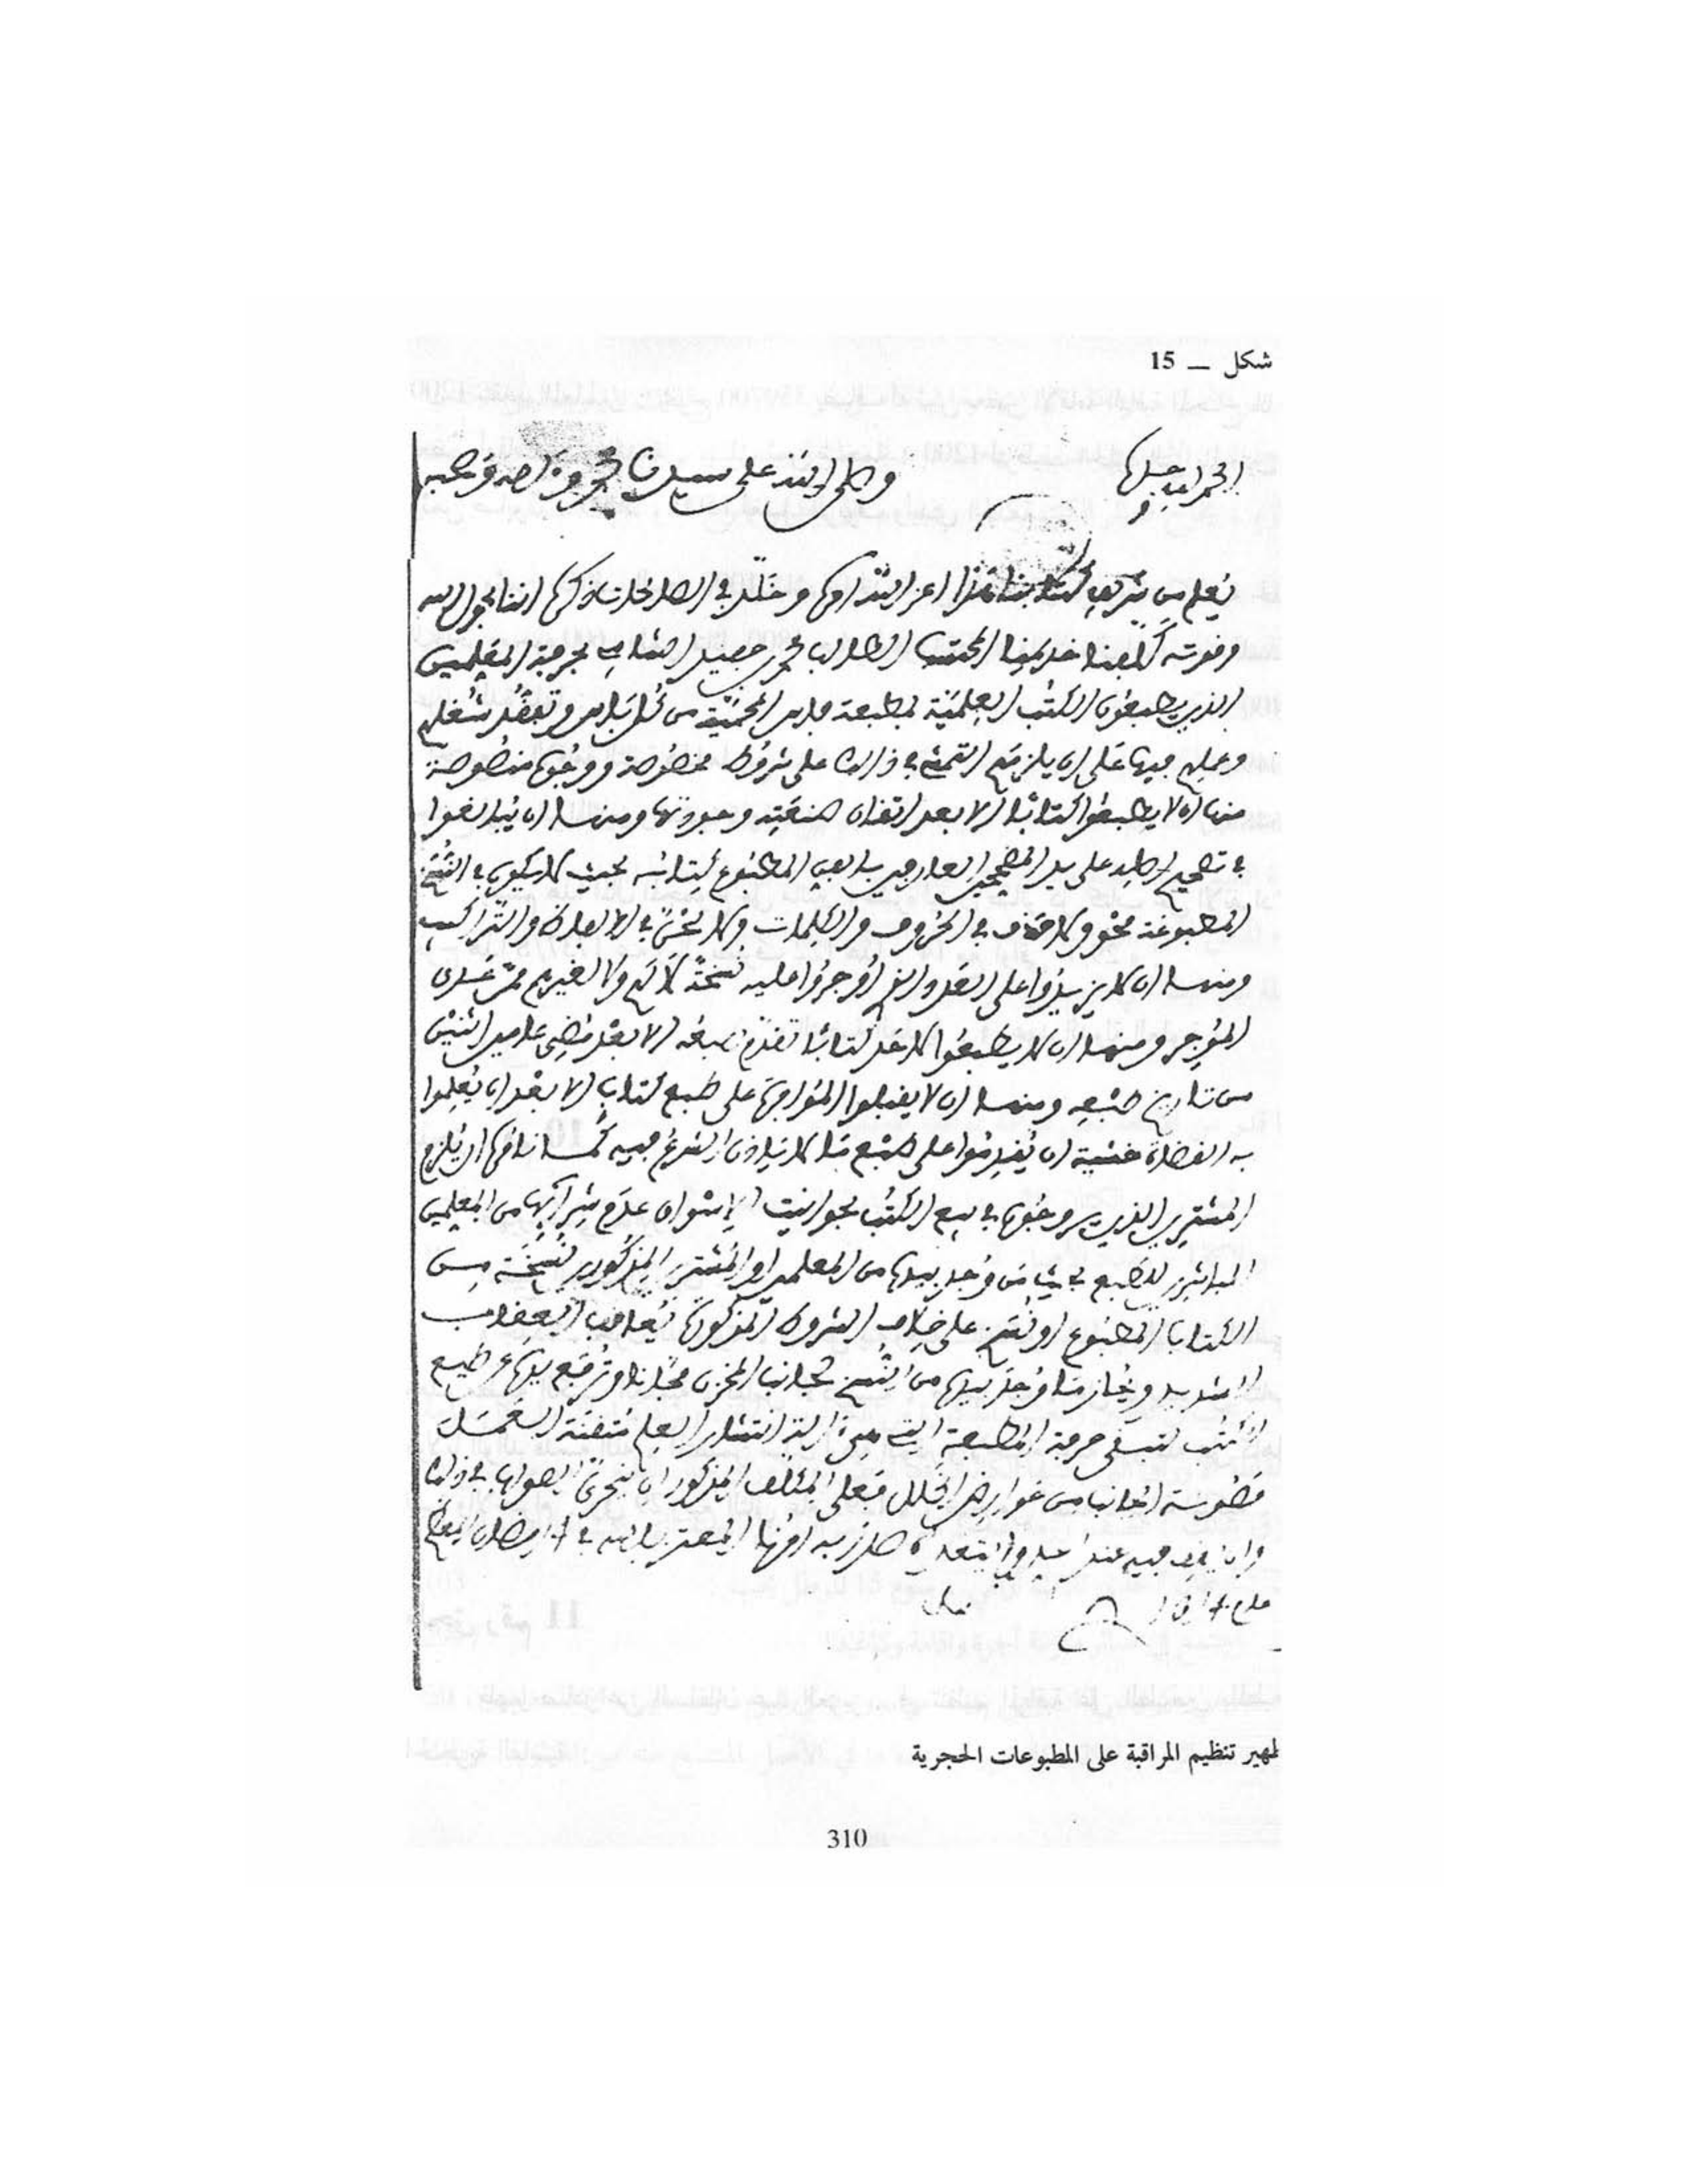 شكل — 15
الحمد لله وحده وصلى الله على سيدنا محمد وءاله وصحبه
يعلم من شريف كتابنا هذا أعز الله أمره وخلد في الصالحات ذكره اننا بحول الله
وقوته كلفنا خديمنا المحتسب الطالب محمد بحرفة المعلمين
الذين يطبعون الكتب العلمية بمطبعة فاس المحمية من كل باس وتفقد شغلهم
وعملهم فيها على ان يلزمهم التمشي في ذالك على شروط مخصوصة ووجوه منصوصة
منها ان لا يطبعوا كتابا إلا بعد اتقان صنعته وجودتها ومنها ان يبالغوا
في تصحيح اصله على يد المصححين العارفين بالفن المطبوع كتابه بحيث لا يكون في النسخ
المطبوعة محو ولا حذف في الحروف والكلمات ولا لحن في الالفاظ والتراكيب
ومنها ان لا يزيدوا على القدر الذي أوجروا عليه نسخة لا لهم ولا لغيرهم ممن عدى
المؤجر ومنها ان لا يطبعوا لاحد كتابا تقدم طبعه إلا بعد مضي عامين اثنين
من تاريخ طبعه ومنها ان لا يقبلوا المؤاجرة على طبع كتاب إلا بعد ان يعلموا
به القضاة خشية ان يقدموا على طبع ما لا ياذن الشرع فيه كما نامره ان يلزم
المشترين الذين في بيع الكتب بحوانيت الاسواق عدم شرائها من المعلمين
المباشرين للطبع بحيث من وجد بيده من المعلمين او المشترين المذكورين نسخة من
الكتاب المطبوع او نسخ على خلاف الشروط المذكورة يعاقب العقاب
الشديد ويحاز ما وجد بيده من النسخ لجانب المخزن مجانا وترفع يده عن طبع
الكتب لتبقى حرفة المطبعة التي هي ءالة انتشار العلم متقنة العمل
محروسة الجانب من عوارض الخلل فعلى المكلف المذكور ان يتحرى الصواب في ذالك
وان يقف فيه عند الحد ولا يتعداه صدر به أمرنا المعتز بالله في رمضان المعظم
عام
ظهير تنظيم المراقبة على المطبوعات الحجرية
310